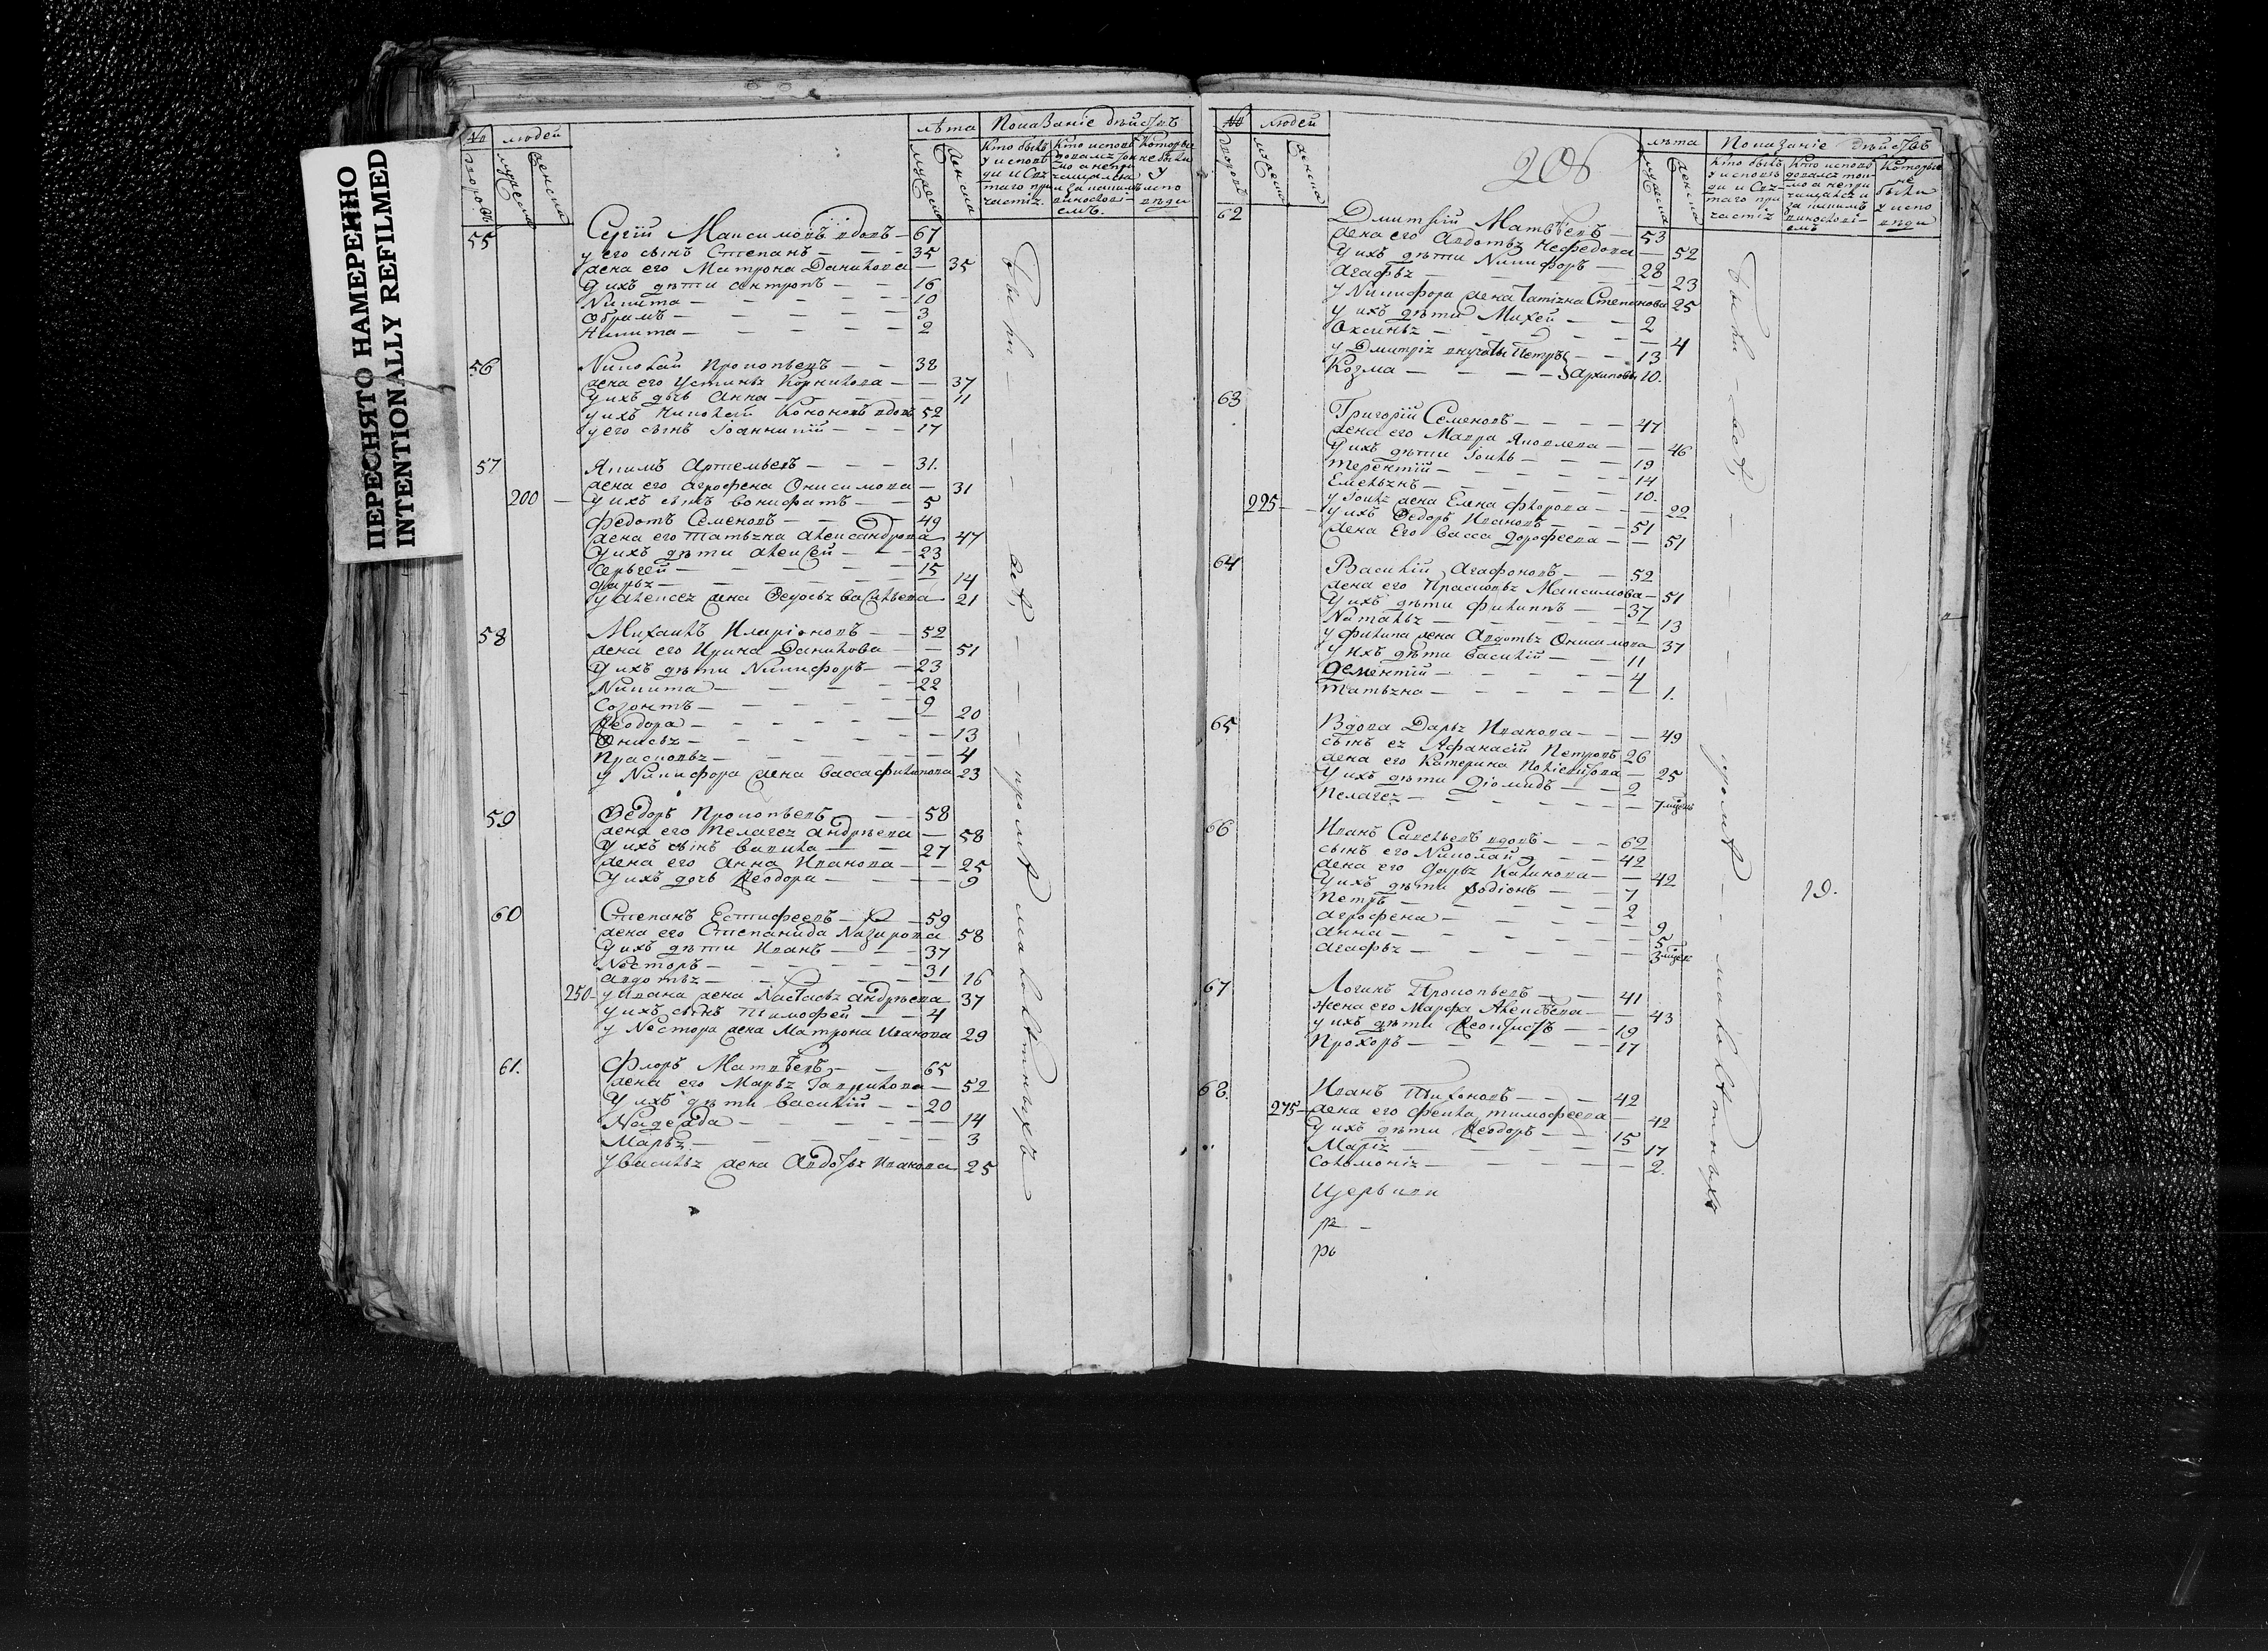 ПЕРЕСНЯТО НАМЕРЕННО
INTENTIONALLY REFILMED
№ людей лѣта Показаніе дѣйствъ
дворовъ мужеска женска мужеска женска
55 Сергій Максимовъ вдовъ — 67
у его сынъ Степанъ — 35
жена его Матрона Данилова — 35
У ихъ дѣти Антропъ — 16
Никита — 10
2
56 Николай Прокопьевъ — 38
жена его Устинья Корнилова — 37
У ихъ дочь Анна — 11
у ихъ Кононовъ вдовъ 52
у его сынъ Іоанникій — 17
57 Якимъ Артемьевъ — 31.
жена его Агрофена Онисимова — 31
200 — У ихъ сынъ Вонифатъ — 5
Федотъ Семеновъ — 49
жена его Татьяна Александрова 47
У ихъ дѣти Алексей — 23
Сергей — 15
Дарья — 14
у Алексея жена Васильева 21
58 Михаилъ Иларіоновъ — 52
жена его Ирина Данилова — 51
У ихъ дѣти Никифоръ — 23
Никита — 22
Созонтъ — 9
Ѳеодора — 20
Онисья — 13
Прасковья — 4
у Никифора жена Васса Филипова 23
59 Ѳедоръ Прокопьевъ — 58
жена его Пелагея Андрѣева — 58
У ихъ сынъ Вавила — 27
жена его Анна Иванова — 25
У ихъ дочь Ѳеодора — 9
60 Степанъ Естифеевъ — 59
жена его Степанида Назарова 58
У ихъ дѣти Иванъ — 37
Несторъ — 31
Авдотья — 16
250 — у Ивана жена Настасья Андрѣева 37
у ихъ сынъ Тимофей — 4
у Нестора жена Матрона Иванова 29
61. Флоръ Матвѣевъ — 65
жена его Марья Гаврилова — 52
У ихъ дѣти Василій — 20
Надежда — 14
Марья — 3
у Василья жена Авдотья Иванова 25
Были — всѣ, — кромѣ малолѣтныхъ
№ людей лѣта Показаніе дѣйствъ
дворовъ мужеска женска мужеска женска
62 Дмитрій Матвѣевъ — 53
жена его Авдотья Нефедова — 52
У ихъ дѣти Никифоръ — 28
Агафья — 23
у Никифора жена Татіяна Степанова 25
У ихъ дѣти Михей — 2
Оксинья — 4
у Дмитрія внучаты Петръ — 13
Козма — Архиповы 10.
63 Григорій Семеновъ — 47
жена его Мавра Яковлева — 46
У ихъ дѣти — 19
Терентій — 14
Емельянъ — 10.
225 — жена Елена Флорова — 22
у ихъ Ѳедоръ Ивановъ — 51
жена Его Васса Дорофеева — 51
64 Василій Агафоновъ — 52
жена его Прасковья Максимова — 51
У ихъ дѣти Филиппъ — 37
Наталья — 13
у Филипа жена Авдотья Онисимова 37
у ихъ дѣти Василій — 11
Дементій — 4
Татьяна — 1.
65 Вдова Дарья Иванова — 49
сынъ ея Афанасій Петровъ 26
жена его Катерина — 25
У ихъ дѣти Діомидъ — 2
Пелагея — 7 мѣсяцъ
66 Иванъ Савельевъ вдовъ — 62
сынъ его Николай — 42
жена его Дарья Калинова — 42
У ихъ дѣти Родіонъ — 7
Петръ — 2
Агрофена — 9
Анна — 5
Агафья — 3 мѣсяц
67 Логинъ Прокопьевъ — 41
жена его Марфа Алексѣева — 43
у ихъ дѣти Ѳеоктистъ — 19
Прохоръ — 17
68. Иванъ Тихоновъ — 42
275 — жена его Фекла Тимофеева — 42
У ихъ дѣти Ѳеодоръ — 15
Марія — 17
Соломонія — 2.
Были — всѣ, — кромѣ — малолѣтныхъ